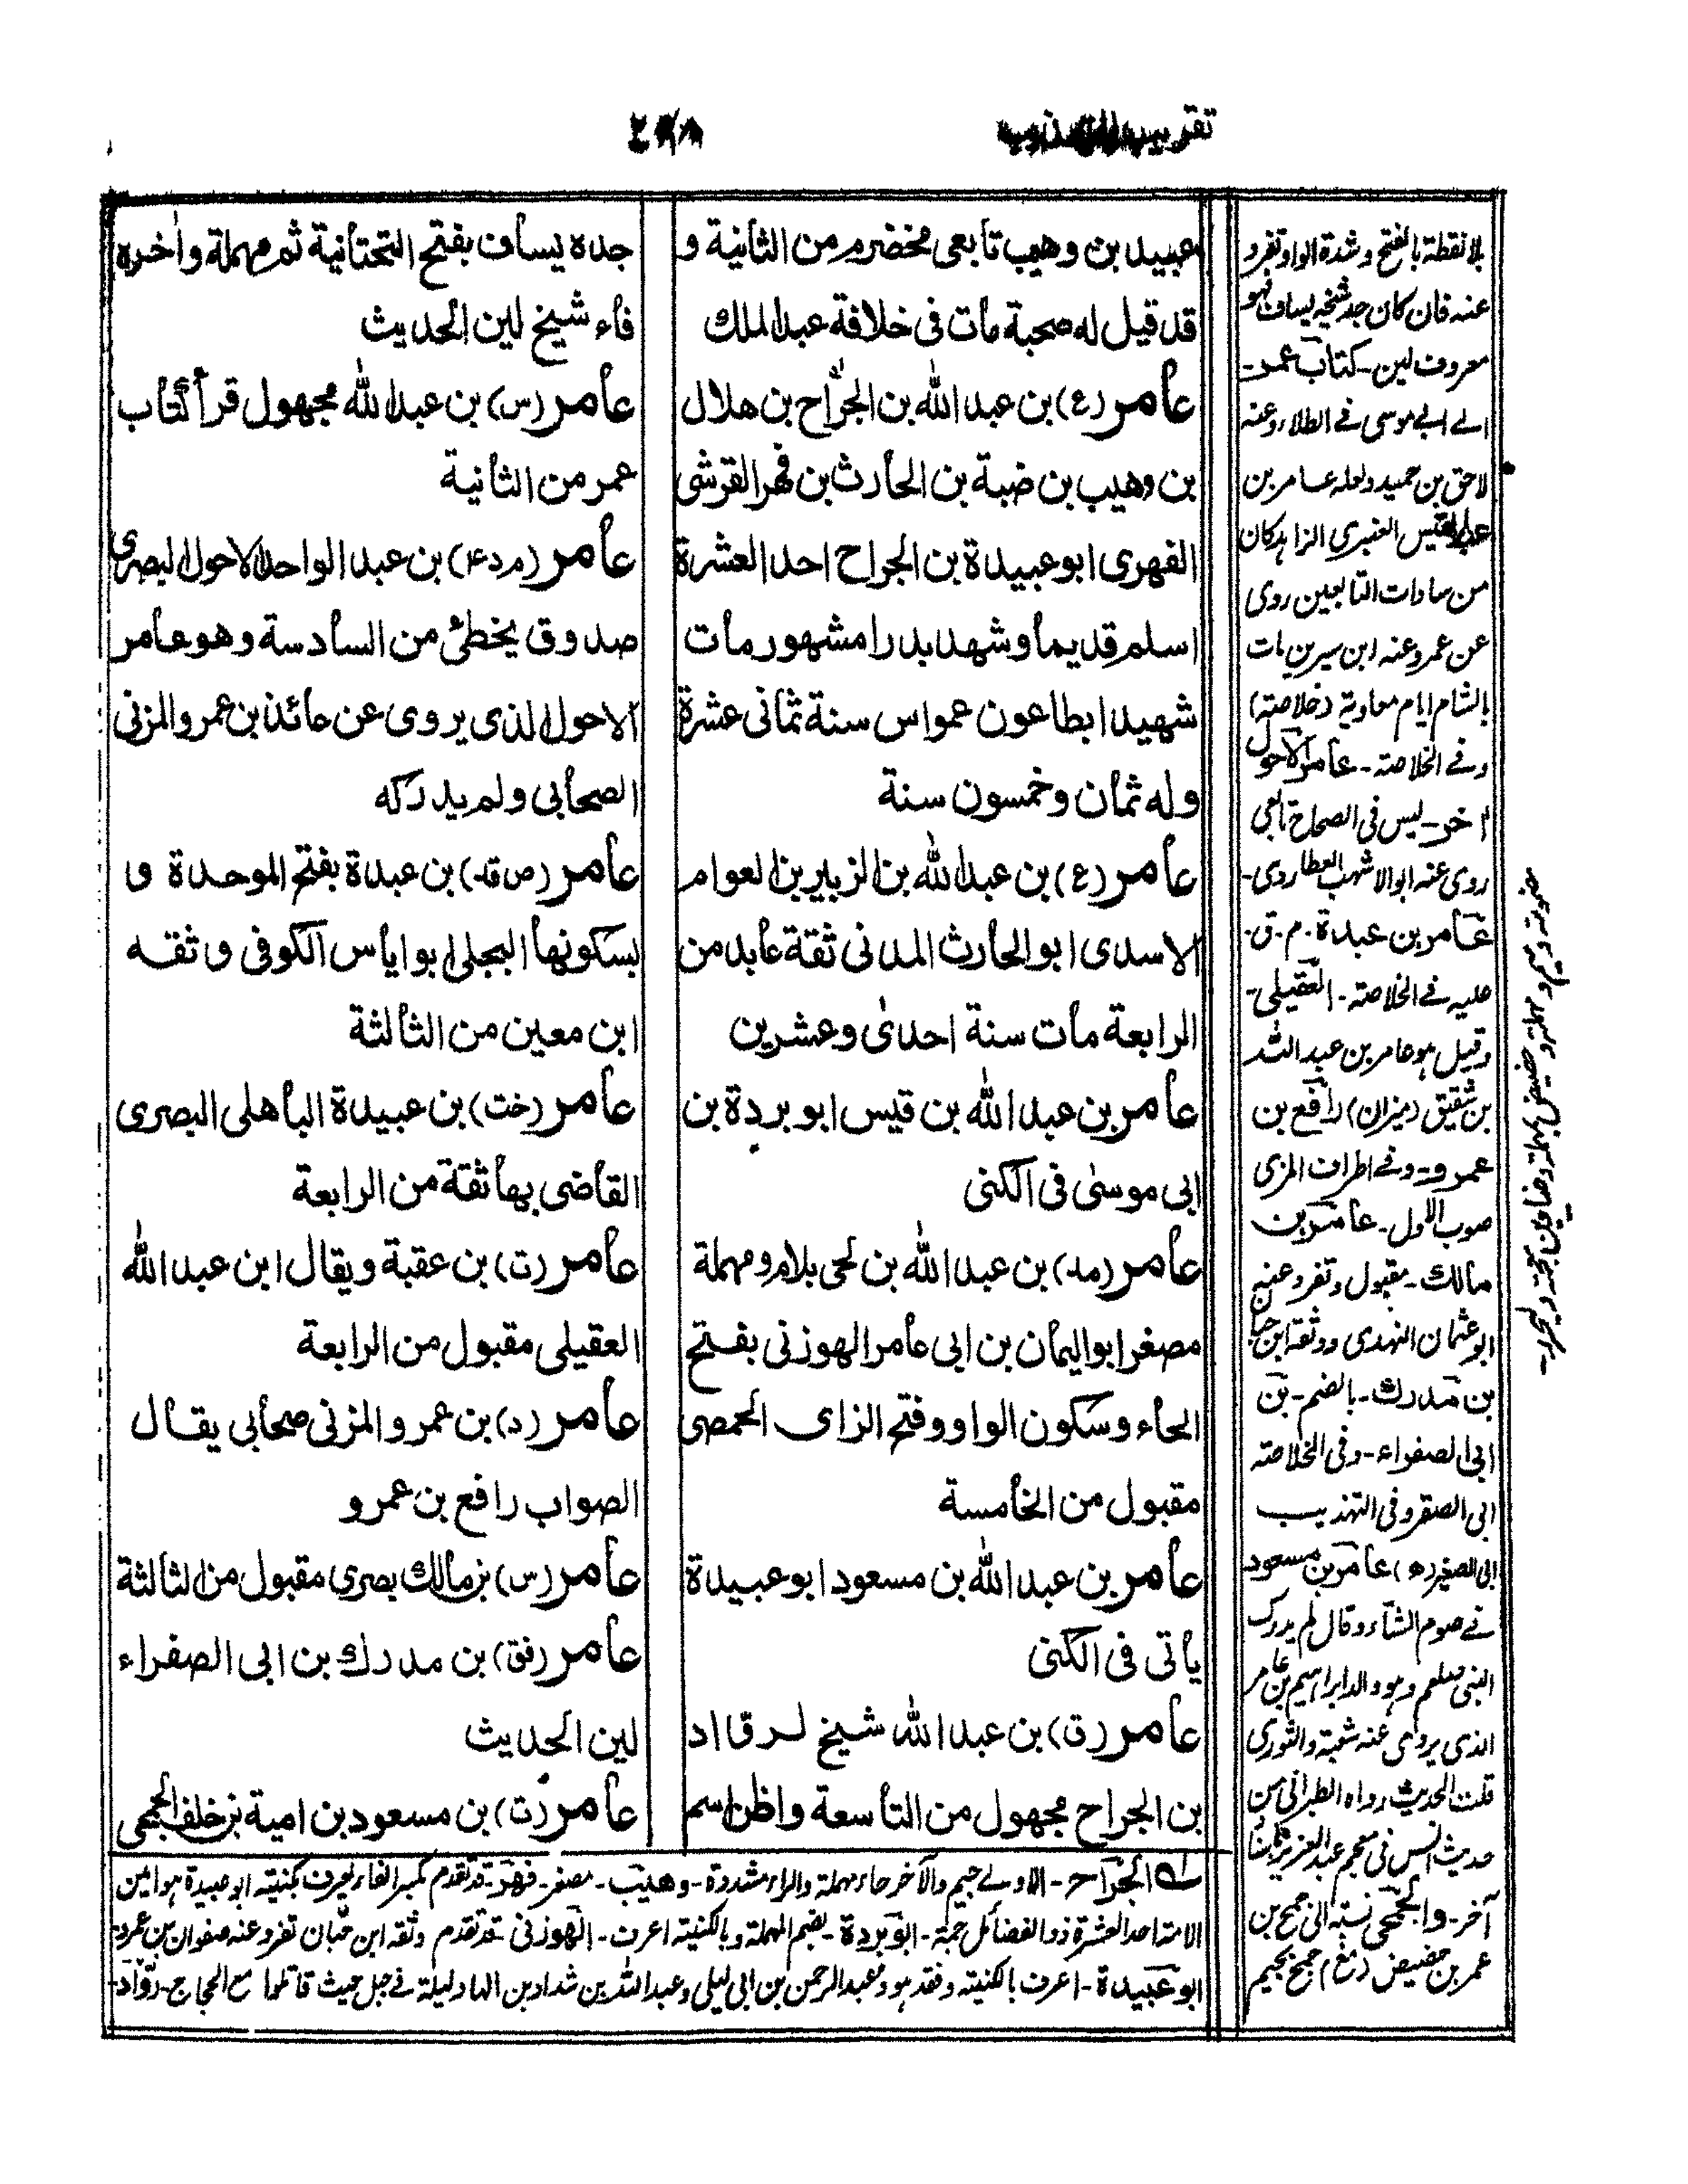 تقريب
عبيد بن وهيب تابعى مخضرم من الثانية و
قد قيل له صحبة مات فى خلافة عبد الملك
عامر (ع) بن عبد الله بن الجراح بن هلال
بن وهيب بن ضبة بن الحارث بن فهر القرشى
الفهرى ابو عبيدة بن الجراح احد العشرة
اسلم قديما وشهد بدرا مشهور مات
شهيدا بطاعون عمواس سنة ثمانى عشرة
وله ثمان وخمسون سنة
عامر (ع) بن عبد الله بن الزبير بن العوام
الاسدى ابو الحارث المدنى ثقة عابد من
الرابعة مات سنة احدى وعشرين
عامر بن عبد الله بن قيس ابو بردة بن
ابى موسى فى الكنى
عامر (مد) بن عبد الله بن لحى بلام ومهملة
مصغر ابو اليمان بن ابى عامر الهوزنى بفتح
الحاء وسكون الواو وفتح الزاى الحمصى
مقبول من الخامسة
عامر بن عبد الله بن مسعود ابو عبيدة
ياتى فى الكنى
عامر (ق) بن عبد الله شيخ لرواد
بن الجراح مجهول من التاسعة واظن اسم
جده يساف بفتح التحتانية ثم مهملة واخره
فاء شيخ لين الحديث
عامر (س) بن عبد الله مجهول قرأ كتاب
عمر من الثانية
عامر (مد ٤) بن عبد الواحد الاحول البصرى
صدوق يخطئ من السادسة وهو عامر
الاحول الذى يروى عن عائذ بن عمرو المزنى
الصحابى ولم يدركه
عامر (ص قد) بن عبدة بفتح الموحدة و
بسكونها البجلى ابو اياس الكوفى وثقه
ابن معين من الثالثة
عامر (خت) بن عبيدة الباهلى البصرى
القاضى بها ثقة من الرابعة
عامر (ت) بن عقبة ويقال ابن عبد الله
العقيلى مقبول من الرابعة
عامر (د) بن عمرو المزنى صحابى يقال
الصواب رافع بن عمرو
عامر (س) بن مالك بصرى مقبول من الثالثة
عامر (فق) بن مدرك بن ابى الصفراء
لين الحديث
عامر (ت) بن مسعود بن امية بن خلف الجمحى
بلا نقطة بالفتح وشدة الواو تفرد
عنه فان كان جد شيخه يساف فهو
معروف لين - كتاب عمر -
الى ابى موسى فى الطلاء وعنه
لاحق بن حميد ولعله عامر بن
عبد القيس العنبرى الزاهد كان
من سادات التابعين روى
عن عمر وعنه ابن سيرين مات
بالشام ايام معاوية (خلاصة)
وفى الخلاصة - عامر الاحول
اخر - ليس فى الصحاح تابعى
روى عنه ابو الاشهب العطاردى -
عامر بن عبدة - م - ق -
عليه فى الخلاصة - العقيلى -
وقيل هو عامر بن عبد الله
بن شقيق (ميزان) رافع بن
عمرو - وفى اطراف المزى
صوب الاول - عامر بن
مالك - مقبول وتفرد عنه
ابو عثمان النهدى ووثقه ابن حبان
بن مدرك - بالضم - بن
ابى الصفراء - وفى الخلاصة
ابى الصقر وفى التهذيب
ابى الصغير (ه) عامر بن مسعود
فى صوم الشتاء وقال لم يدرك
النبى صلعم وهو والد ابراهيم بن عامر
الذى يروى عنه شعبة والثورى
قلت الحديث رواه الطبرانى من
حديث انس فى معجم
آخر - والجمحى نسبة الى جمح بن
عمر بن هصيص (مغ) جمح بجيم
له الجراح - الاولى جيم والآخر حاء مهملة والراء مشددة - وهيب - مصغر - فهر - قد تقدم بكسر الفاء يعرف بكنيته ابو عبيدة هو امين
الامة احد العشرة ذو الفضائل جمة - ابو بردة - بضم المهملة وبالكنية اعرف - الهوزنى - قد تقدم وثقه ابن حبان تفرد عنه صفوان بن عمرو -
ابو عبيدة - اعرف بالكنية وفقد هو وعبد الرحمن بن ابى ليلى وعبد الله بن شداد بن الهاد ليلة دجيل حيث قاتلوا مع الحجاج - رواد -